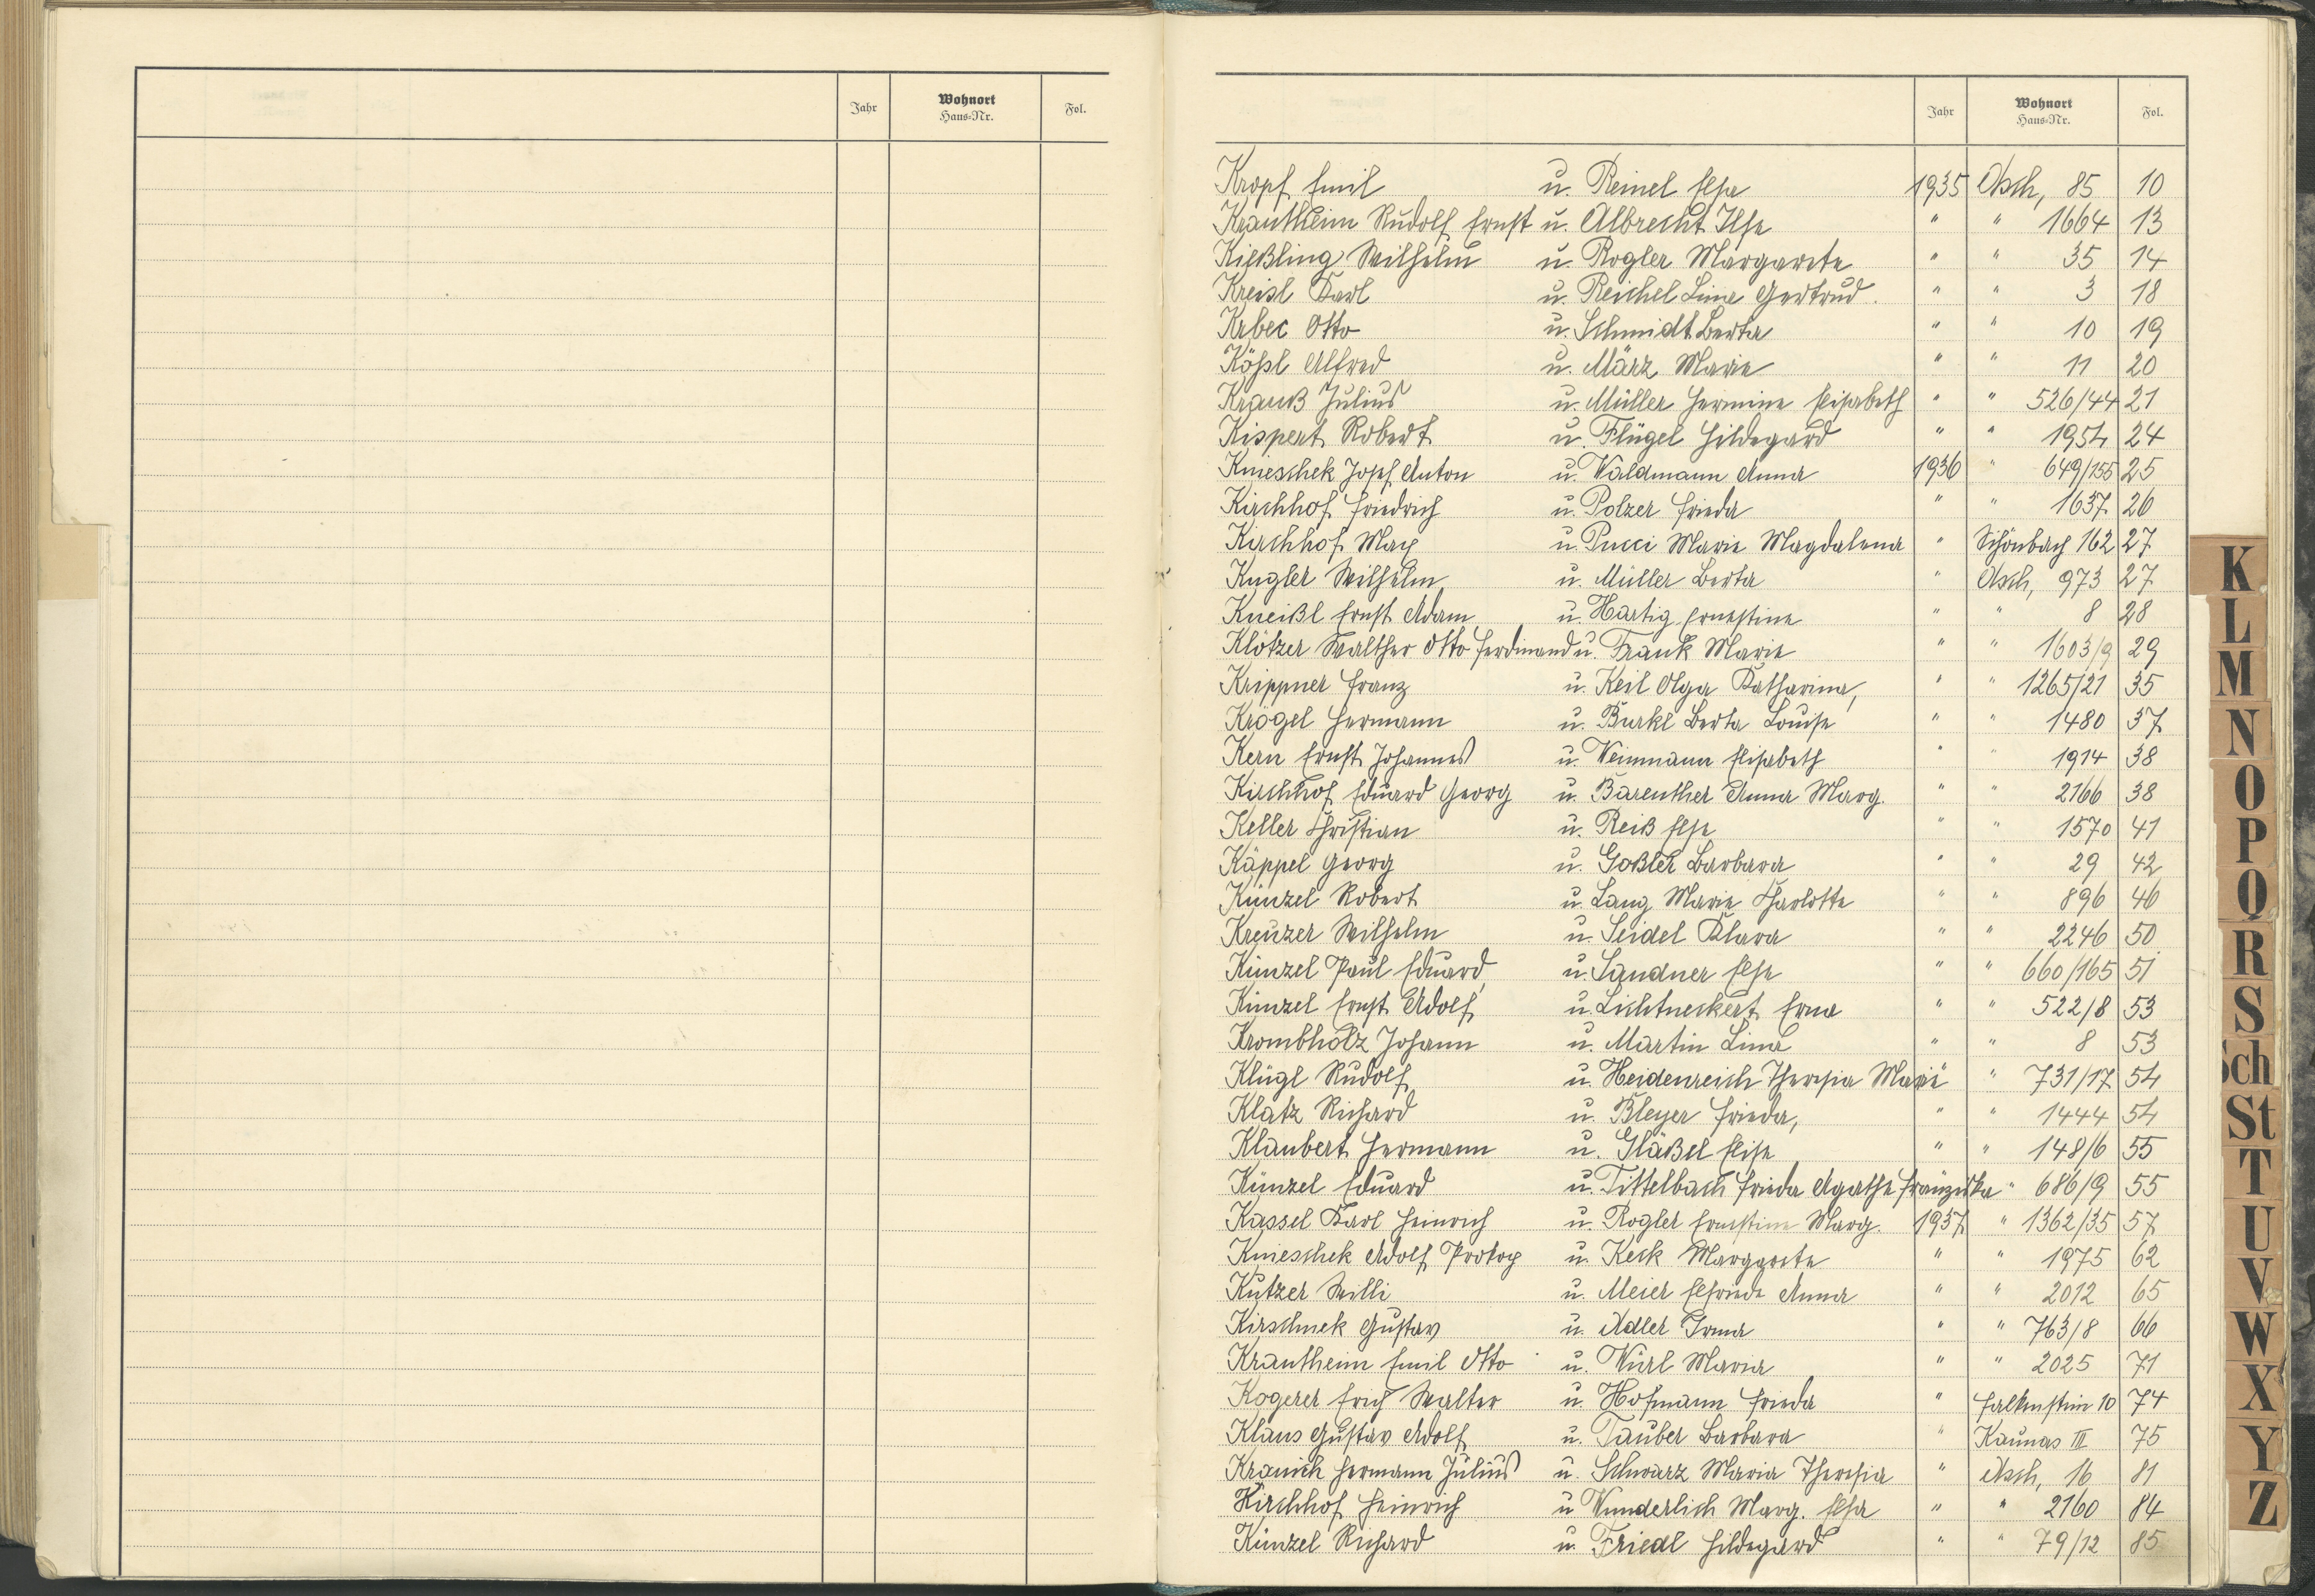 Jahr Wohnort Haus-Nr. Fol.
Jahr Wohnort Haus-Nr. Fol.
Kropf Emil u. Reinel Elsa 1935 Asch, 85 10
Krautheim Rudolf Ernst u. Albrecht Ilse " " 1664 13
Kießling Wilhelm u. Rogler Margarete " " 35 14
Kreisl Karl u. Reichel Lina Gertrud. " " 3 18
Krbec Otto u. Schmidt Berta " " 10 19
Kößl Alfred u. März Marie " " 11 20
Krauß Julius u. Müller Hermine Elisabeth " " 526/44 21
Kispert Robert u. Flügel Hildegard " " 1954 24
Knieschek Josef Anton u. Waldmann Anna 1936 " 649/155 25
Kirchhof Friedrich u. Polzer Frieda " " 1637 26
Kirchhof Max u. Pucci Marie Magdalena " Schönbach 162 27
Kugler Wilhelm u. Müller Berta " Asch, 973 27
Kneißl Ernst Adam u. Hartig Ernestine " " 8 28
Klötzer Walther Otto Ferdinand u. Frank Marie " " 1603/9 29
Krippner Franz u. Keil Olga Katharina, " " 1265/21 35
Krögel Hermann u. Burkl Berta Louise " " 1480 37
Kern Ernst Johannes u. Weinmann Elisabeth " " 1914 38
Kirchhof Eduard Georg u. Bareuther Anna Marg. " " 2166 38
Keller Christian u. Reiß Else " " 1570 41
Käppel Georg u. Goßler Barbara " " 29 42
Künzel Robert u. Lang Marie Charlotte " " 896 46
Kreuzer Wilhelm u. Seidel Klara " " 2246 50
Künzel Paul Eduard u. Sandner Else " " 660/165 51
Künzel Ernst Adolf u. Lichtneckert Erna " " 522/8 53
Krombholz Johann u. Martin Lina " " 8 53
Klügl Rudolf u. Heidenreich Theresia Marie " " 731/17 54
Klatz Richard u. Bleyer Frieda, " " 1444 54
Klaubert Hermann u. Gläßel Elise " " 148/6 55
Künzel Eduard u. Tittelbach Frieda Agathe Franziska " 686/9 55
Kassel Karl Heinrich u. Rogler Ernestine Marg. 1937 " 1362/35 57
Knieschek Adolf Protop u. Keck Margarete " " 1975 62
Kutzer Willi u. Meier Elfriede Anna " " 2012 65
Kirschnek Gustav u. Adler Irma " " 763/8 66
Krautheim Emil Otto u. Würl Maria " " 2025 71
Kogerer Erich Walter u. Hofmann Frieda " Falkenstein 10 74
Klaus Gustav Adolf u. Tauber Barbara " Kaunas III 75
Kranich Hermann Julius u. Schwarz Maria Theresia " Asch, 16 81
Kirchhof Heinrich u. Wunderlich Marg. Elsa " " 2160 84
Künzel Richard u. Friedl Hildegard " " 79/12 85
K
L
M
N
O
P
Q
R
S
Sch
St
T
U
V
W
X
Y
Z